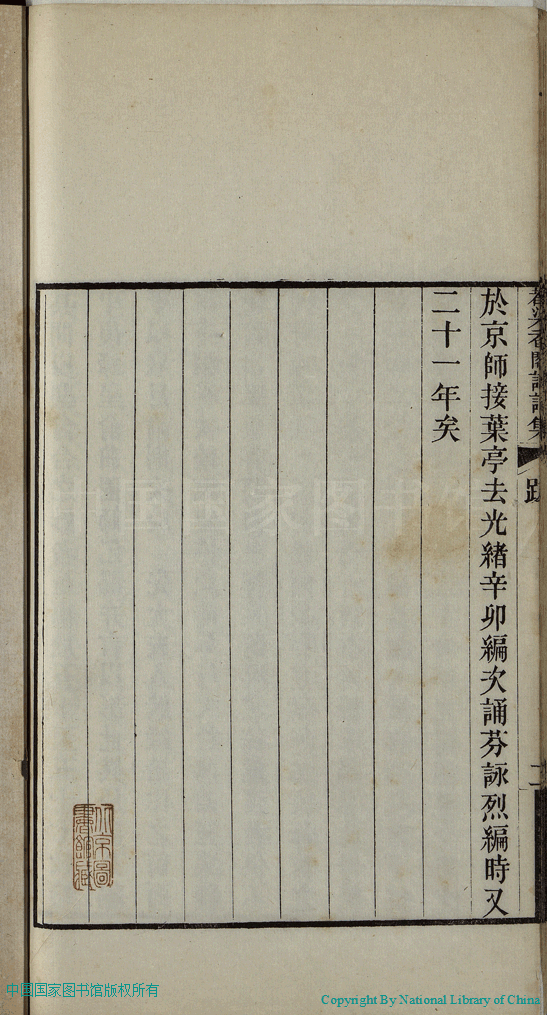 於京師接葉亭去光緒辛卯編次誦芬詠烈編時又
二十一年矣
跋
二
北京圖書館藏
中国国家图书馆
中国国家图书馆版权所有
Copyright By National Library of China